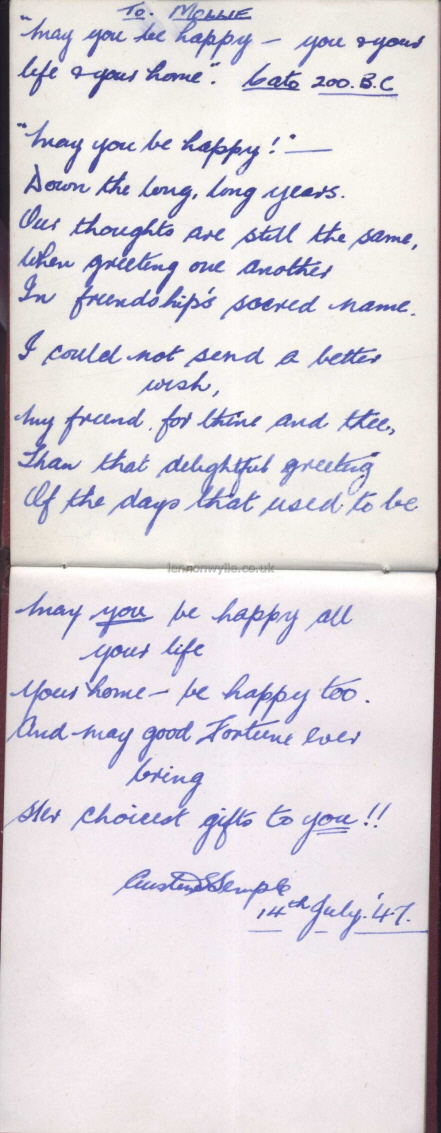 To. MOLLIE
"May you be happy – you & your
life & your home". Cato 200. B.C
"May you be happy!" —
Down the long, long years.
Our thoughts are still the same,
When greeting one another
In friendship's sacred name.
I could not send a better
wish,
My friend, for thine and thee,
Than that delightful greeting
Of the days that used to be
lennonwylie.co.uk
May you be happy all
your life
Your home – be happy too.
And may good Fortune ever
bring
Her choicest gifts to you!!
14th July. '47.